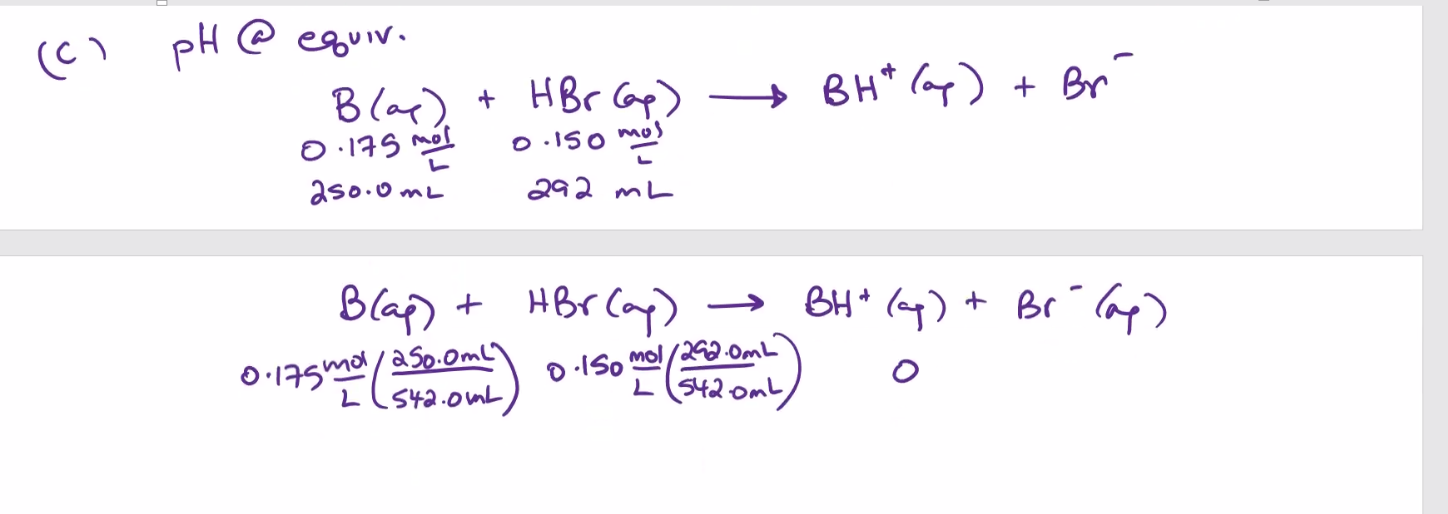 (c) pH @ equiv.
B(aq) + HBr(aq) → BH⁺(aq) + Br⁻
0.175 mol/L 0.150 mol/L
250.0 mL 292 mL
B(aq) + HBr(aq) → BH⁺(aq) + Br⁻(aq)
0.175 mol/L (250.0mL/542.0mL) 0.150 mol/L (292.0mL/542.0mL) 0